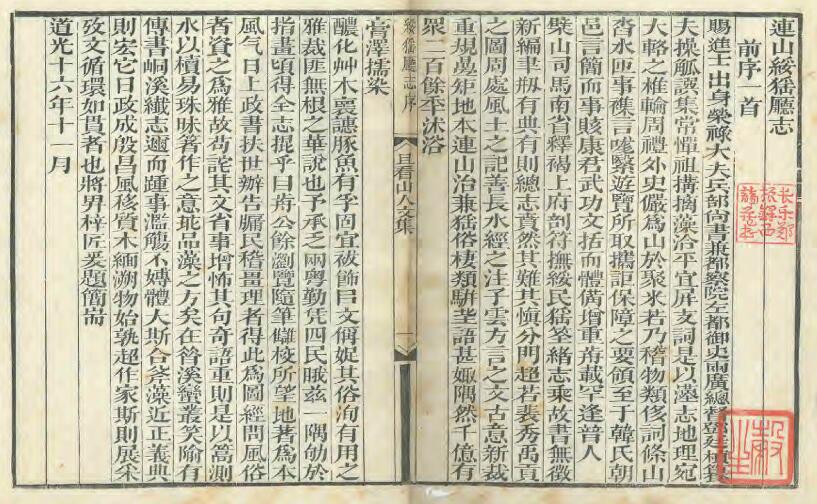 連山綏猺廳志
前序一首
賜進士出身榮祿大夫兵部尚書兼都察院左都御史兩廣總督鄧廷楨譔
夫操觚譔集常憚祖構摛藻洽平宜屏支詞是以藻志地理宛
大輅之椎輪周禮外史儼爲山於聚米若乃稽物類侈詞條山
沓水匝事襍言嚨繄遊覽所取攜詎保障之要領至于韓氏朝
邑言簡而事賅康君武功文括而體備增重前載罕逢普人
檗山司馬南省釋褐上府剖符撫綏民猺筌緒志乘故書無徵
新編肇刱有典有則總志賁然其難其慎分門超若裴秀禹貢
之圖周處風土之記善長水經之注子雲方言之文古意新裁
重規疊矩地本連山治兼猺俗棲類駢
語甚娵隅然千億有
眾二百餘年沐浴
綏猺廳志序
且看山人文集
一
膏澤擩染
醲化艸木裛譓豚魚有孚固宜被飾曰文稱娖其俗洵有用之
雅裁匪無根之華說也予承乏兩粤勤凭四民眷茲一隅劬於
指畫頃得全志提乎曰前公餘瀏覽隨筆讎校所望地著爲本
風气日上政書扶世辦告牖民稽畺理者得此爲圖經問風俗
者資之爲雅故
其文省事增怖其句奇語重則是以蠡測
水以櫝易珠昧箸作之意
品藻之方矣在昝溪蠻叢笑喻有
傳書峒溪纖志邇而踵事濫觴不嫥體大斯合斧藻近正義典
則宏它日政成殷昌風移質木緬溯物始孰超作家斯則展采
攷文循環如貫者也將畀梓匠爰題簡耑
道光十六年十一月